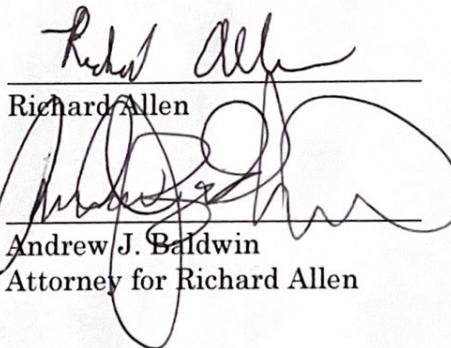 Richard Allen
Richard Allen
Andrew J. Baldwin
Attorney for Richard Allen